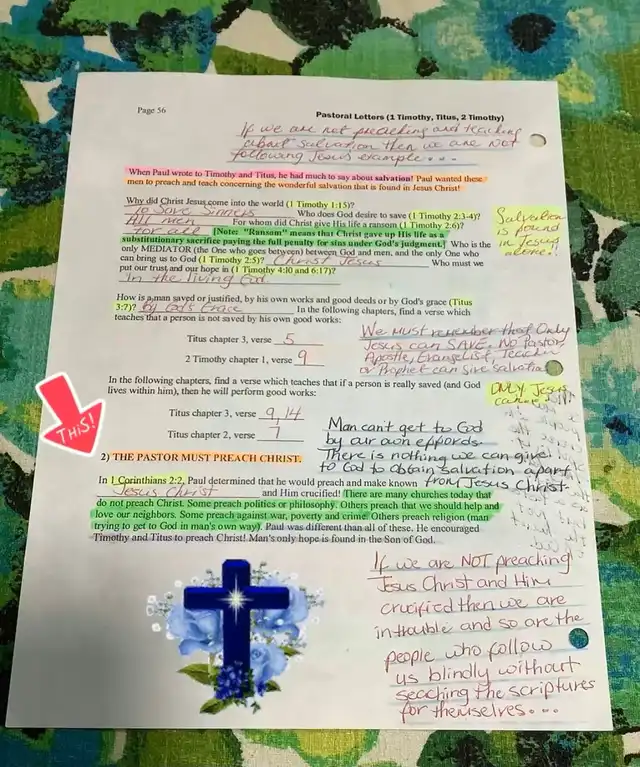 Page 56
Pastoral Letters (1 Timothy, Titus, 2 Timothy)
If we are not preaching and teaching
about salvation then we are NOT
following Jesus example...
When Paul wrote to Timothy and Titus, he had much to say about salvation! Paul wanted these
men to preach and teach concerning the wonderful salvation that is found in Jesus Christ!
Why did Christ Jesus come into the world (1 Timothy 1:15)?
To Save Sinners Who does God desire to save (1 Timothy 2:3-4)?
All men For whom did Christ give His life a ransom (1 Timothy 2:6)?
for all [Note: "Ransom" means that Christ gave up His life as a
substitutionary sacrifice paying the full penalty for sins under God's judgment.] Who is the
only MEDIATOR (the One who goes between) between God and men, and the only One who
can bring us to God (1 Timothy 2:5)? Christ Jesus Who must we
put our trust and our hope in (1 Timothy 4:10 and 6:17)?
in the living God
Salvation
is found
in Jesus
alone!!
How is a man saved or justified, by his own works and good deeds or by God's grace (Titus
3:7)? By God's Grace In the following chapters, find a verse which
teaches that a person is not saved by his own good works:
Titus chapter 3, verse 5
2 Timothy chapter 1, verse 9
We Must remember that Only
Jesus can SAVE. No Pastor,
Apostle, Evangelist, Teacher
or Prophet can Give Salvation
ONLY Jesus
can
In the following chapters, find a verse which teaches that if a person is really saved (and God
lives within him), then he will perform good works:
Titus chapter 3, verse 9,14
Titus chapter 2, verse 7
Man can't get to God
by our own effords.
There is nothing we can give
to God to obtain salvation apart
from Jesus Christ
THIS!
2) THE PASTOR MUST PREACH CHRIST.
In 1 Corinthians 2:2, Paul determined that he would preach and make known
Jesus Christ and Him crucified! There are many churches today that
do not preach Christ. Some preach politics or philosophy. Others preach that we should help and
love our neighbors. Some preach against war, poverty and crime. Others preach religion (man
trying to get to God in man's own way). Paul was different than all of these. He encouraged
Timothy and Titus to preach Christ! Man's only hope is found in the Son of God.
If we are NOT preaching
Jesus Christ and Him
crucified then we are
in trouble and so are the
people who follow
us blindly without
seaching the scriptures
for themselves...